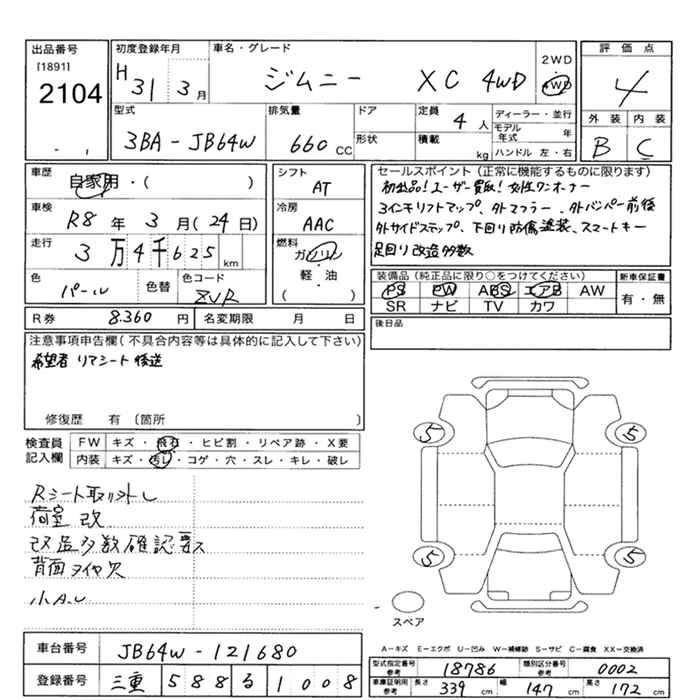 出品番号
[1891]
2104
初度登録年月
H31 3月
車名・グレード
ジムニー XC 4WD
2WD
4WD
評価点
4
外装 内装
B C
型式
3BA-JB64W
排気量
660 CC
ドア
形状
定員
4人
積載
kg
ディーラー・並行
モデル年式 年
ハンドル 左・右
車歴
自家用・( )
車検
R8年3月(24日)
走行
3万4千625km
色
パール
色替
色コード
ZVR
シフト
AT
冷房
AAC
燃料
ガソリン
軽・油
( )
セールスポイント(正常に機能するものに限ります)
初出品!ユーザー買取!女性ワンオーナー
3インチリフトアップ、外マフラー、外バンパー前後
外サイドステップ、下回り防傷塗装、スマートキー
足回り改造多数
装備品(純正品に限り○をつけてください)
PS PW ABS エアB AW
SR ナビ TV カワ
新車保証書
有・無
R券 8,360円 名変期限 月 日
後日品
注意事項申告欄(不具合内容等は具体的に記入して下さい)
希望者 リアシート後送
修復歴 有 (箇所 )
検査員記入欄
FW キズ・飛石・ヒビ割・リペア跡・X要
内装 キズ・汚レ・コゲ・穴・スレ・キレ・破レ
Rシート取り外し
荷室 改
改造多数確認要ス
背面タイヤ欠
小A.U
5 5
5 5
スペア
A-キズ E-エクボ U-凹み W-補修跡 S-サビ C-腐食 XX-交換済
車台番号 JB64W-121680
登録番号 三重 588 る 1008
型式指定番号 参考 18786 類別区分番号 参考 0002
車庫証明用 参考 長さ 339cm 幅 147cm 高さ 172cm